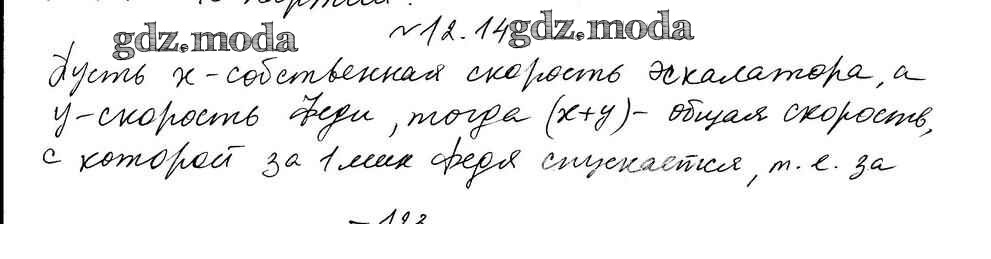 №12.14
gdz.moda gdz.moda
Пусть x - собственная скорость эскалатора, а
y - скорость Феди, тогда (x+y) - общая скорость,
с которой за 1 мин Федя спускается, т. е. за